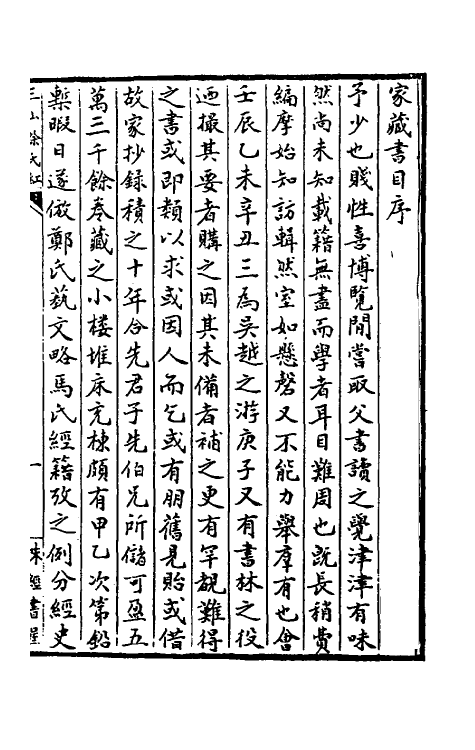 家藏書目序
予少也賤性喜博覽閒嘗取父書讀之覺津津有味
然尚未知載籍無盡而學者耳目難周也旣長稍費
編摩始知訪輯然室如懸磬又不能力舉羣有也會
壬辰乙未辛丑三爲吳越之游庚子又有書林之役
迺撮其要者購之因其未備者補之更有罕覩難得
之書或即類以求或因人而乞或有朋舊見貽或借
故家抄録積之十年合先君子先伯兄所儲可盈五
萬三千餘卷藏之小樓堆床充棟頗有甲乙次第鉛
槧暇日遂倣鄭氏藝文略馬氏經籍攷之例分經史
三山徐氏紅
一
書屋